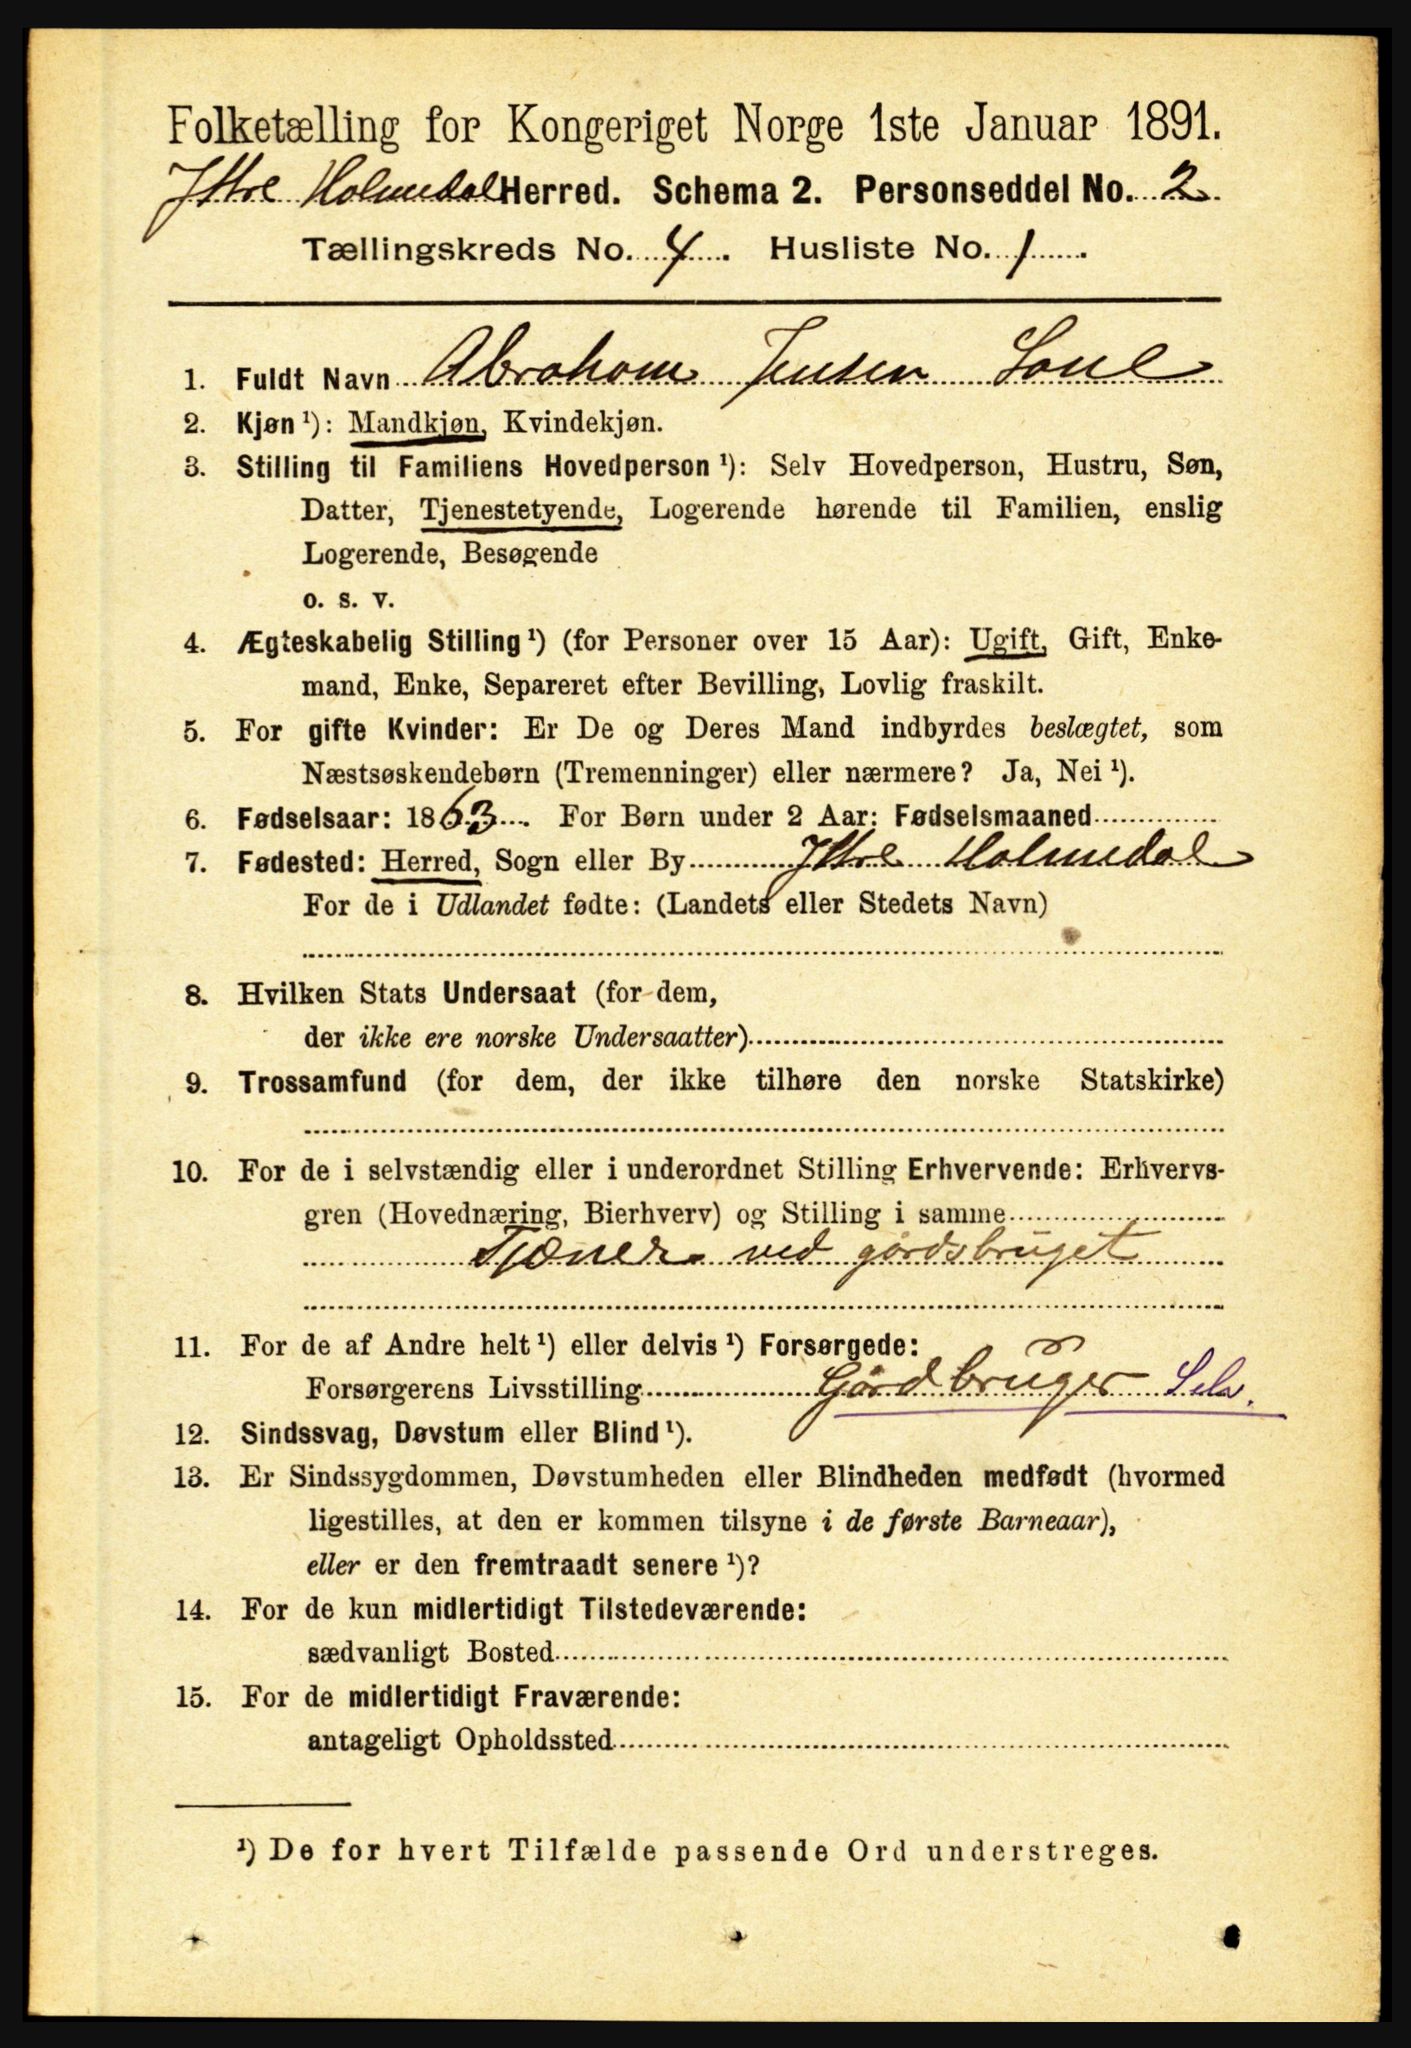 Folketælling for Kongeriget Norge 1ste Januar 1891.
Ittre Holmedal Herred. Schema 2. Personseddel No. 2.
Tællingskreds No. 4. Husliste No. 1.
1. Fuldt Navn Abraham Jensen
2. Kjøn ¹): Mandkjøn, Kvindekjøn.
3. Stilling til Familiens Hovedperson ¹): Selv Hovedperson, Hustru, Søn,
Datter, Tjenestetyende, Logerende hørende til Familien, enslig
Logerende, Besøgende
o. s. v.
4. Ægteskabelig Stilling ¹) (for Personer over 15 Aar): Ugift, Gift, Enke-
mand, Enke, Separeret efter Bevilling, Lovlig fraskilt.
5. For gifte Kvinder: Er De og Deres Mand indbyrdes beslægtet, som
Næstsøskendebørn (Tremenninger) eller nærmere? Ja, Nei ¹).
6. Fødselsaar: 1863. For Børn under 2 Aar: Fødselsmaaned
7. Fødested: Herred, Sogn eller By Ittre Holmedal
For de i Udlandet fødte: (Landets eller Stedets Navn)
8. Hvilken Stats Undersaat (for dem,
der ikke ere norske Undersaatter)
9. Trossamfund (for dem, der ikke tilhøre den norske Statskirke)
10. For de i selvstændig eller i underordnet Stilling Erhvervende: Erhvervs-
gren (Hovednæring, Bierhverv) og Stilling i samme
Tjæner ved gårdsbruget
11. For de af Andre helt ¹) eller delvis ¹) Forsørgede:
Forsørgerens Livsstilling Gårdbruger Selv.
12. Sindssvag, Døvstum eller Blind ¹).
13. Er Sindssygdommen, Døvstumheden eller Blindheden medfødt (hvormed
ligestilles, at den er kommen tilsyne i de første Barneaar),
eller er den fremtraadt senere ¹)?
14. For de kun midlertidigt Tilstedeværende:
sædvanligt Bosted
15. For de midlertidigt Fraværende:
antageligt Opholdssted
¹) De for hvert Tilfælde passende Ord understreges.